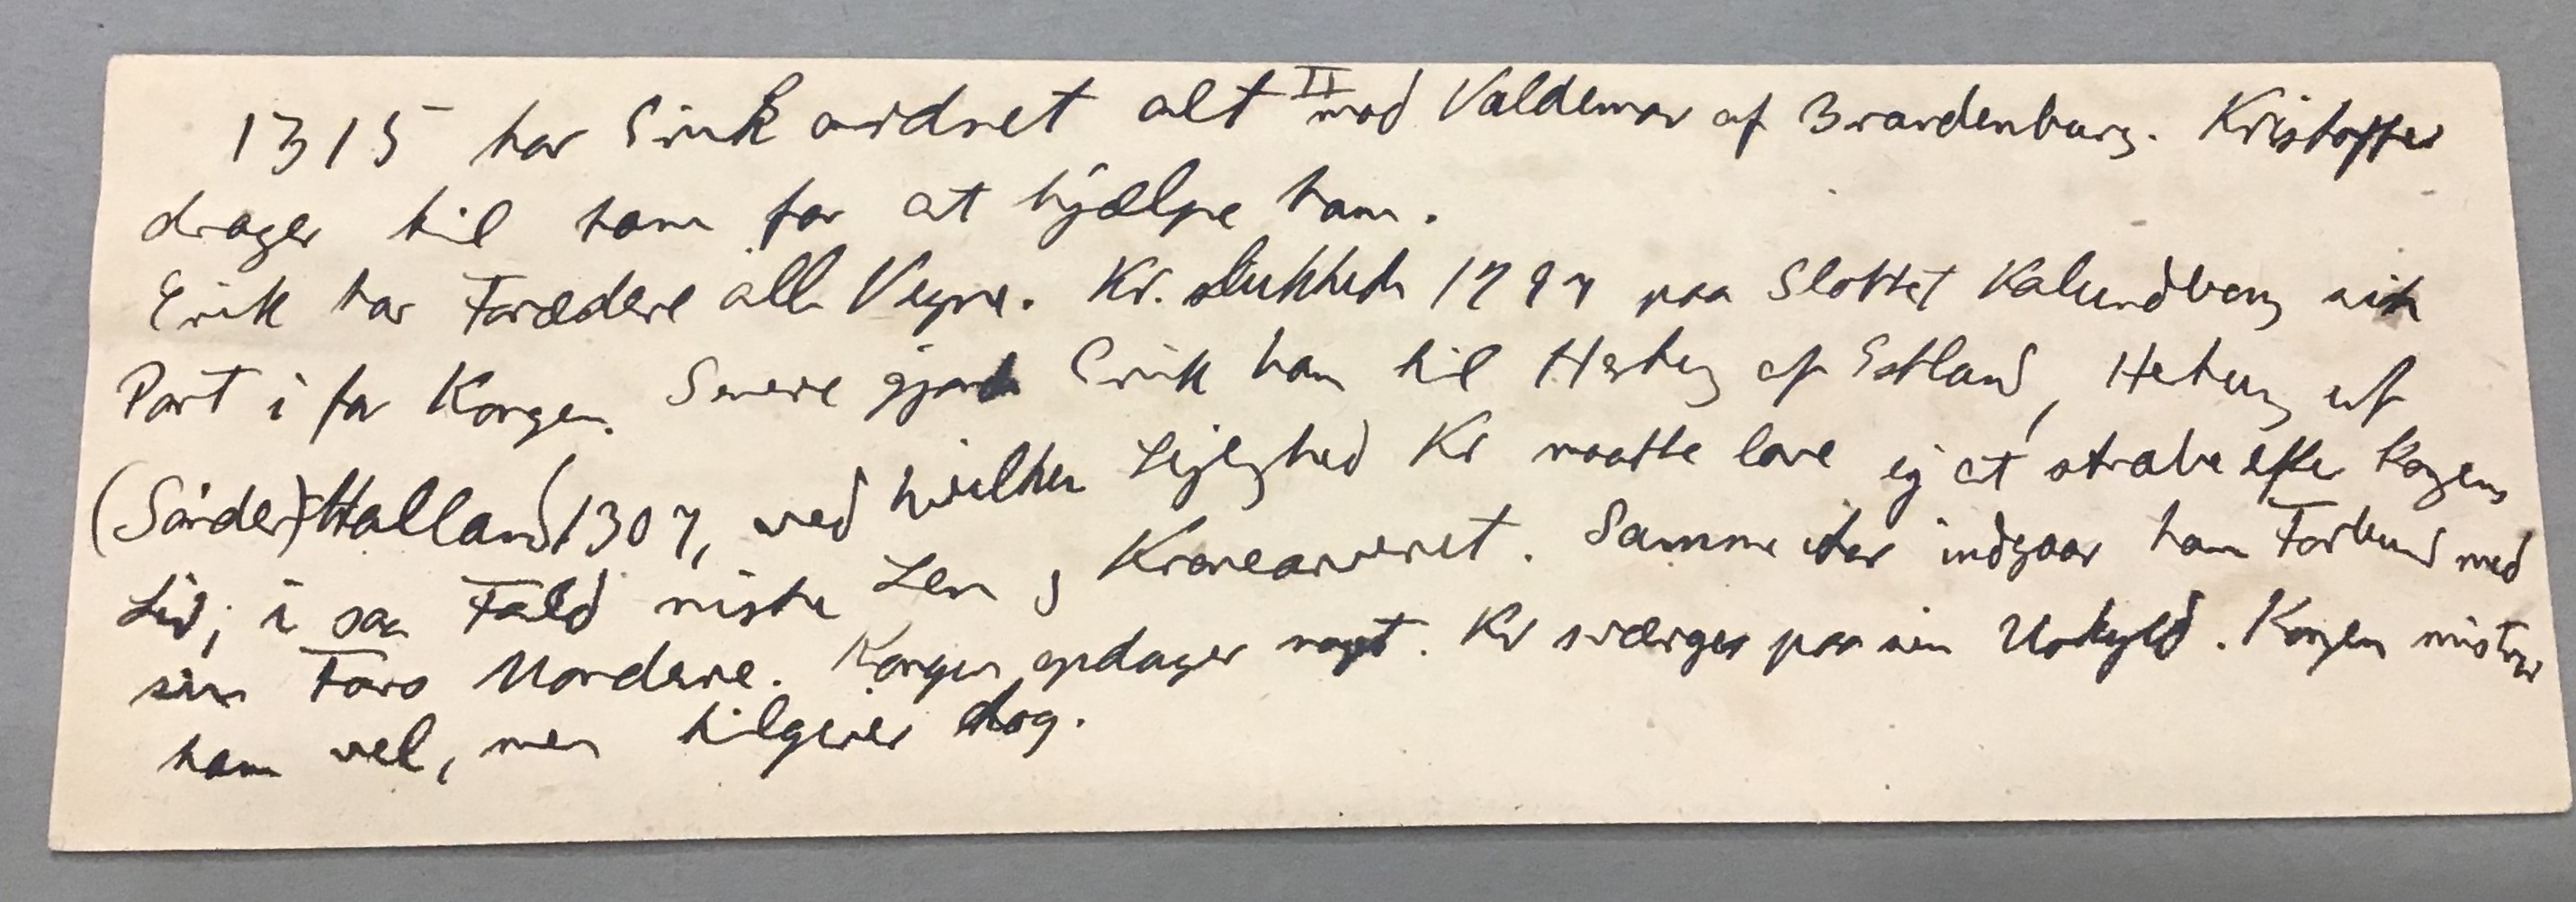 1315 har Erik ordnet alt II mod Valdemar af Brandenburg. Kristoffer
drager til ham for at hjælpe ham.
Erik har Forrædere alle Vegne. Kr. 1297 paa Slottet Kalundborg sin
Part i for Kongen. Senere gjorde Erik ham til Hertug af Estland, Hertug af
(Sønder) Halland 1307, ved hvilken Lejlighed Kr maatte love ej at stræbe efter Kongens
Liv; i saa Fald miste Len og Kronearveret. Samme Aar indgaar han Forbund med
sin Fars Mordere. Kongen opdager noget. Kr sværger paa sin Uskyld. Kongen mistror
ham vel, men tilgiver dog.